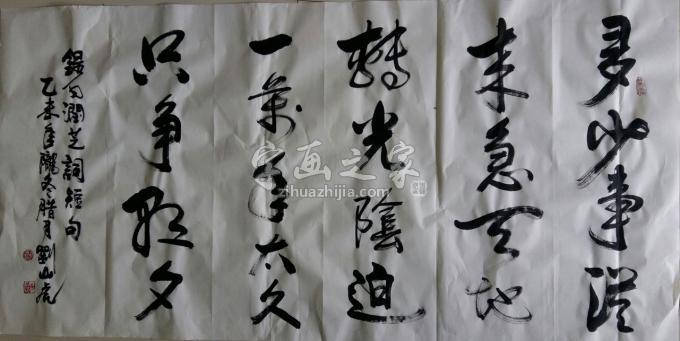 多少事從
来急天地
轉光陰迫
一萬年太久
只争朝夕
錄毛潤芝詞短句
乙未年隴冬腊月劉山虎
字画之家
zihuazhijia.com